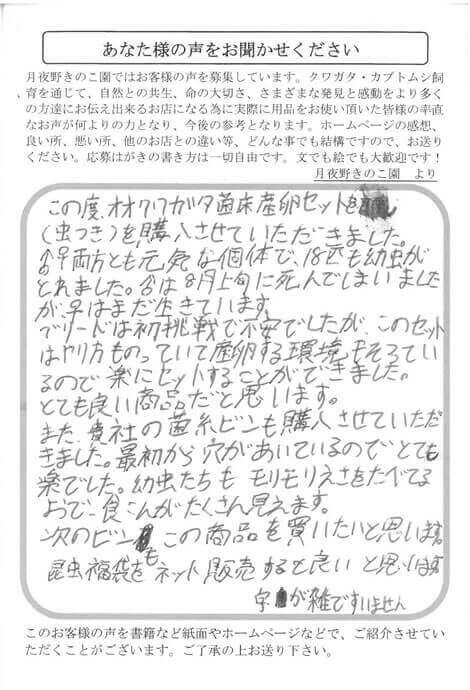 あなた様の声をお聞かせください
月夜野きのこ園ではお客様の声を募集しています。クワガタ・カブトムシ飼
育を通じて、自然との共生、命の大切さ、さまざまな発見と感動をより多く
の方達にお伝え出来るお店になる為に実際に用品をお使い頂いた皆様の率直
なお声が何よりの力となり、今後の参考となります。ホームページの感想、
良い所、悪い所、他のお店との違い等、どんな事でも結構ですので、お送り
ください。応募はがきの書き方は一切自由です。文でも絵でも大歓迎です！
月夜野きのこ園 より
この度、オオクワガタ菌床産卵セットを
(虫つき)を購入させていただきました。
♂♀両方とも元気な個体で、18匹も幼虫が
とれました。♂は8月上旬に死んでしまいました
が、♀はまだ生きています。
ブリードは初挑戦で不安でしたが、このセット
はやり方ものっていて産卵する環境もそろってい
るので楽にセットすることができました。
とても良い商品だと思います。
また、貴社の菌糸ビンも購入させていただ
きました。最初から穴があいているのでとても
楽でした。幼虫たちもモリモリえさをたべてる
ようで、食こんがたくさん見えます。
次のビンも この商品を買いたいと思います。
昆虫福袋をネット販売すると良いと思います。
字が雑ですいません
このお客様の声を書籍など紙面やホームページなどで、ご紹介させてい
ただくことがございます。ご了承の上お送り下さい。